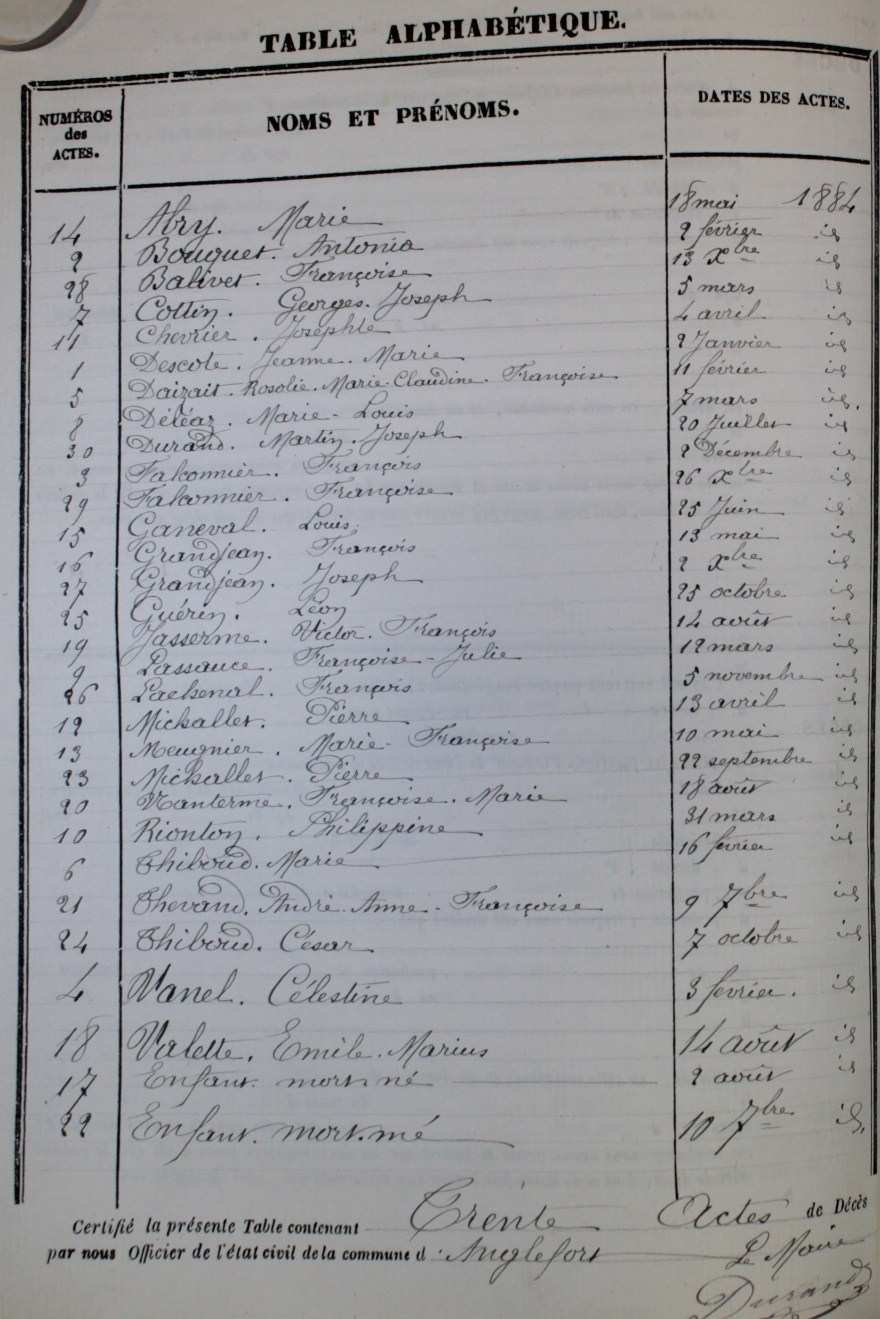 TABLE ALPHABÉTIQUE.
NUMÉROS des ACTES. NOMS ET PRÉNOMS. DATES DES ACTES.
14 Abry. Marie 18 mai 1884
2 Bouquet. Antonia 2 février id
28 Balivet. Françoise 13 Xbre id
7 Cottin. Georges. Joseph 5 mars id
11 Chevrier. Josephte 4 avril id
1 Descote. Jeanne. Marie 2 Janvier id
5 Daizait. Rosolie. Marie-Claudine. Françoise 11 février id
8 Déléaz. Marie-Louis 7 mars id.
30 Durand. Martin. Joseph 20 Juillet id
3 Falconnier. François 2 Décembre id
29 Falconnier. Françoise 26 Xbre id
15 Ganeval. Louis. 25 Juin id
16 Grandjean. François 13 mai id
27 Grandjean. Joseph 2 Xbre id
25 Guérin. Léon 25 octobre id
19 Jasserme. Victor. François 14 août id
9 Lassauce. Françoise-Julie 12 mars id
26 Lachenal. François 5 novembre id
12 Michallet. Pierre 13 avril id
13 Meugnier. Marie-Françoise 10 mai id
23 Michallet. Pierre 22 septembre id
20 Nanterme. Françoise. Marie 18 août id
10 Rionton. Philippine 31 mars id
6 Thiboud. Marie 16 février id
21 Thevand. André. Anne-Françoise 9 7bre id
24 Thiboud. César 7 octobre id
4 Vanel. Célestine 3 fevrier. id
18 Valette. Emile. Marius 14 août id
17 Enfant mort né 2 août id
22 Enfant. mort. né 10 7bre id.
Certifié la présente Table contenant Trente Actes de Décès
par nous Officier de l'état civil de la commune d'Anglefort Le Maire
Durand